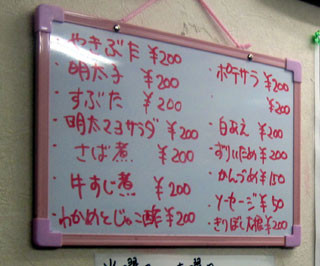 ・やきぶた ¥200
・明太子 ¥200
・すぶた ¥200
・明太マヨサラダ ¥200
・さば煮 ¥200
・牛すじ煮 ¥200
・わかめとじゃこ酢 ¥200
・ポテサラ ¥200
¥200
・白あえ ¥200
・ずりいため ¥200
・かんづめ ¥150
・ソーセージ ¥50
・きりぼし大根 ¥200